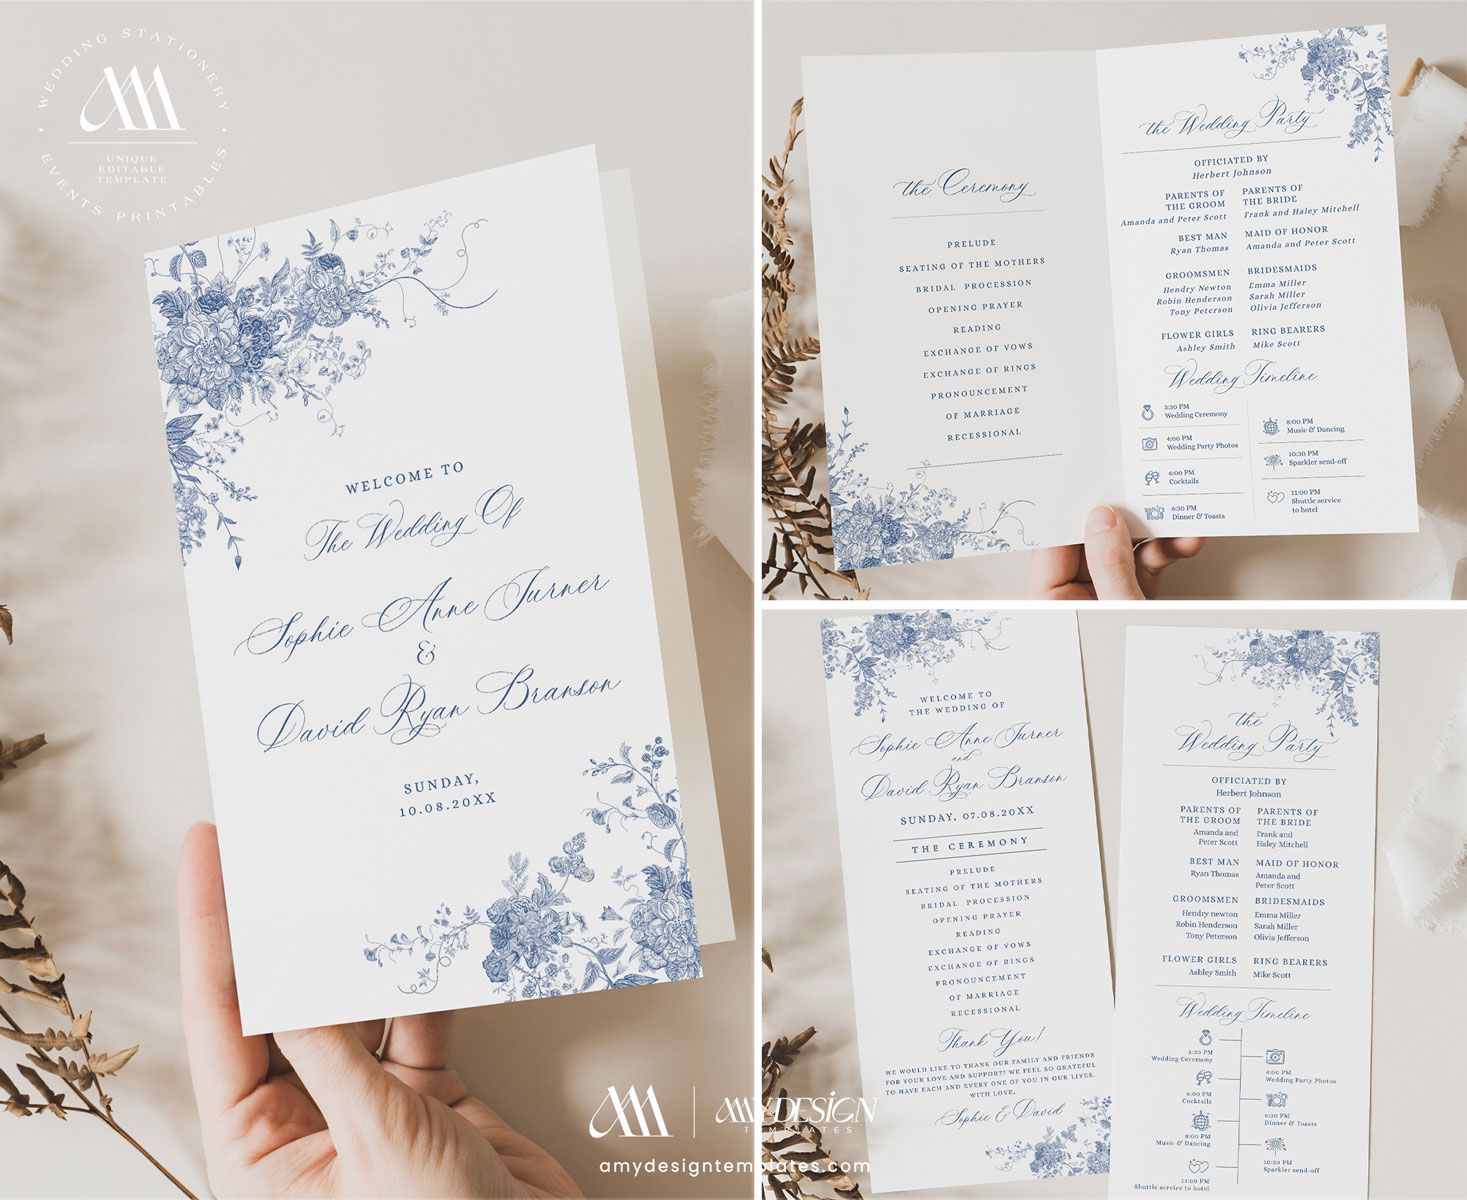 WEDDING STATIONERY
UNIQUE
EDITABLE
TEMPLATE
EVENTS PRINTABLES
WELCOME TO
The Wedding Of
Sophie Anne Turner
&
David Ryan Branson
SUNDAY,
10.08.20XX
the Ceremony
PRELUDE
SEATING OF THE MOTHERS
BRIDAL PROCESSION
OPENING PRAYER
READING
EXCHANGE OF VOWS
EXCHANGE OF RINGS
PRONOUNCEMENT
OF MARRIAGE
RECESSIONAL
the Wedding Party
OFFICIATED BY
Herbert Johnson
PARENTS OF
THE GROOM
Amanda and Peter Scott
PARENTS OF
THE BRIDE
Frank and Haley Mitchell
BEST MAN
Ryan Thomas
MAID OF HONOR
Amanda and Peter Scott
GROOMSMEN
Hendry Newton
Robin Henderson
Tony Peterson
BRIDESMAIDS
Emma Miller
Sarah Miller
Olivia Jefferson
FLOWER GIRLS
Ashley Smith
RING BEARERS
Mike Scott
Wedding Timeline
3:30 PM
Wedding Ceremony
4:00 PM
Wedding Party Photos
6:00 PM
Cocktails
6:30 PM
Dinner & Toasts
8:00 PM
Music & Dancing
10:30 PM
Sparkler send-off
11:00 PM
Shuttle service
to hotel
WELCOME TO
THE WEDDING OF
Sophie Anne Turner
and
David Ryan Branson
SUNDAY, 07.08.20XX
THE CEREMONY
PRELUDE
SEATING OF THE MOTHERS
BRIDAL PROCESSION
OPENING PRAYER
READING
EXCHANGE OF VOWS
EXCHANGE OF RINGS
PRONOUNCEMENT
OF MARRIAGE
RECESSIONAL
Thank You!
WE WOULD LIKE TO THANK OUR FAMILY AND FRIENDS
FOR YOUR LOVE AND SUPPORT! WE FEEL SO GRATEFUL
TO HAVE EACH AND EVERY ONE OF YOU IN OUR LIVES.
WITH LOVE,
Sophie & David
the
Wedding Party
OFFICIATED BY
Herbert Johnson
PARENTS OF
THE GROOM
Amanda and
Peter Scott
PARENTS OF
THE BRIDE
Frank and
Haley Mitchell
BEST MAN
Ryan Thomas
MAID OF HONOR
Amanda and
Peter Scott
GROOMSMEN
Hendry newton
Robin Henderson
Tony Peterson
BRIDESMAIDS
Emma Miller
Sarah Miller
Olivia Jefferson
FLOWER GIRLS
Ashley Smith
RING BEARERS
Mike Scott
Wedding Timeline
3:30 PM
Wedding Ceremony
4:00 PM
Wedding Party Photos
6:00 PM
Cocktails
6:30 PM
Dinner & Toasts
8:00 PM
Music & Dancing
10:30 PM
Sparkler send-off
11:00 PM
Shuttle service to hotel
AMY DESIGN
TEMPLATES
amydesigntemplates.com